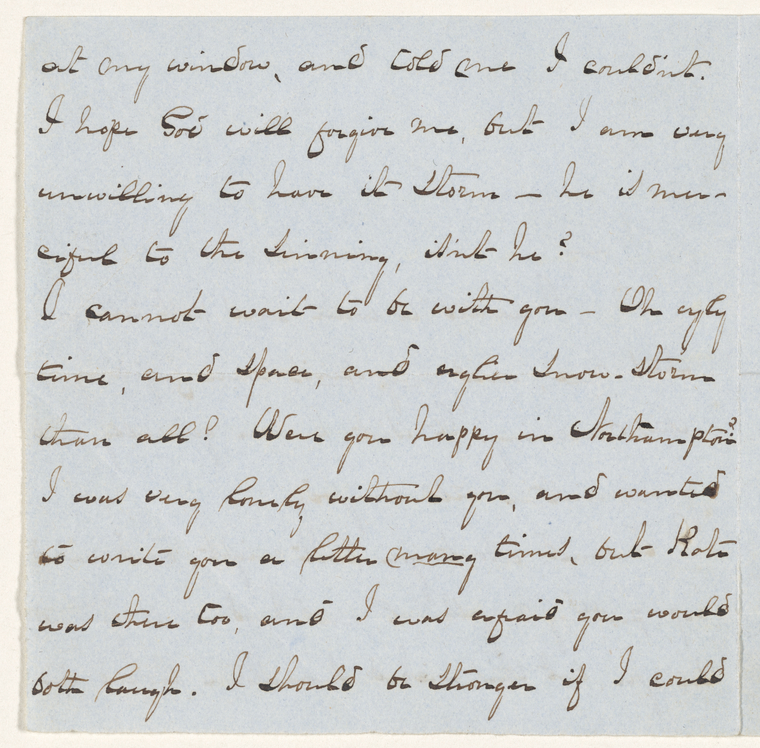 at my window, and told me I could'nt.
I hope God will forgive me, but I am very
unwilling to have it storm – he is mer-
ciful to the sinning, is'nt he?
I cannot wait to be with you – Oh ugly
time, and space, and uglier snow-storm
than all! Were you happy in Northampton?
I was very lonely without you, and wanted
to write you a letter many times, but Kate
was there too, and I was afraid you would
both laugh. I should be stronger if I could